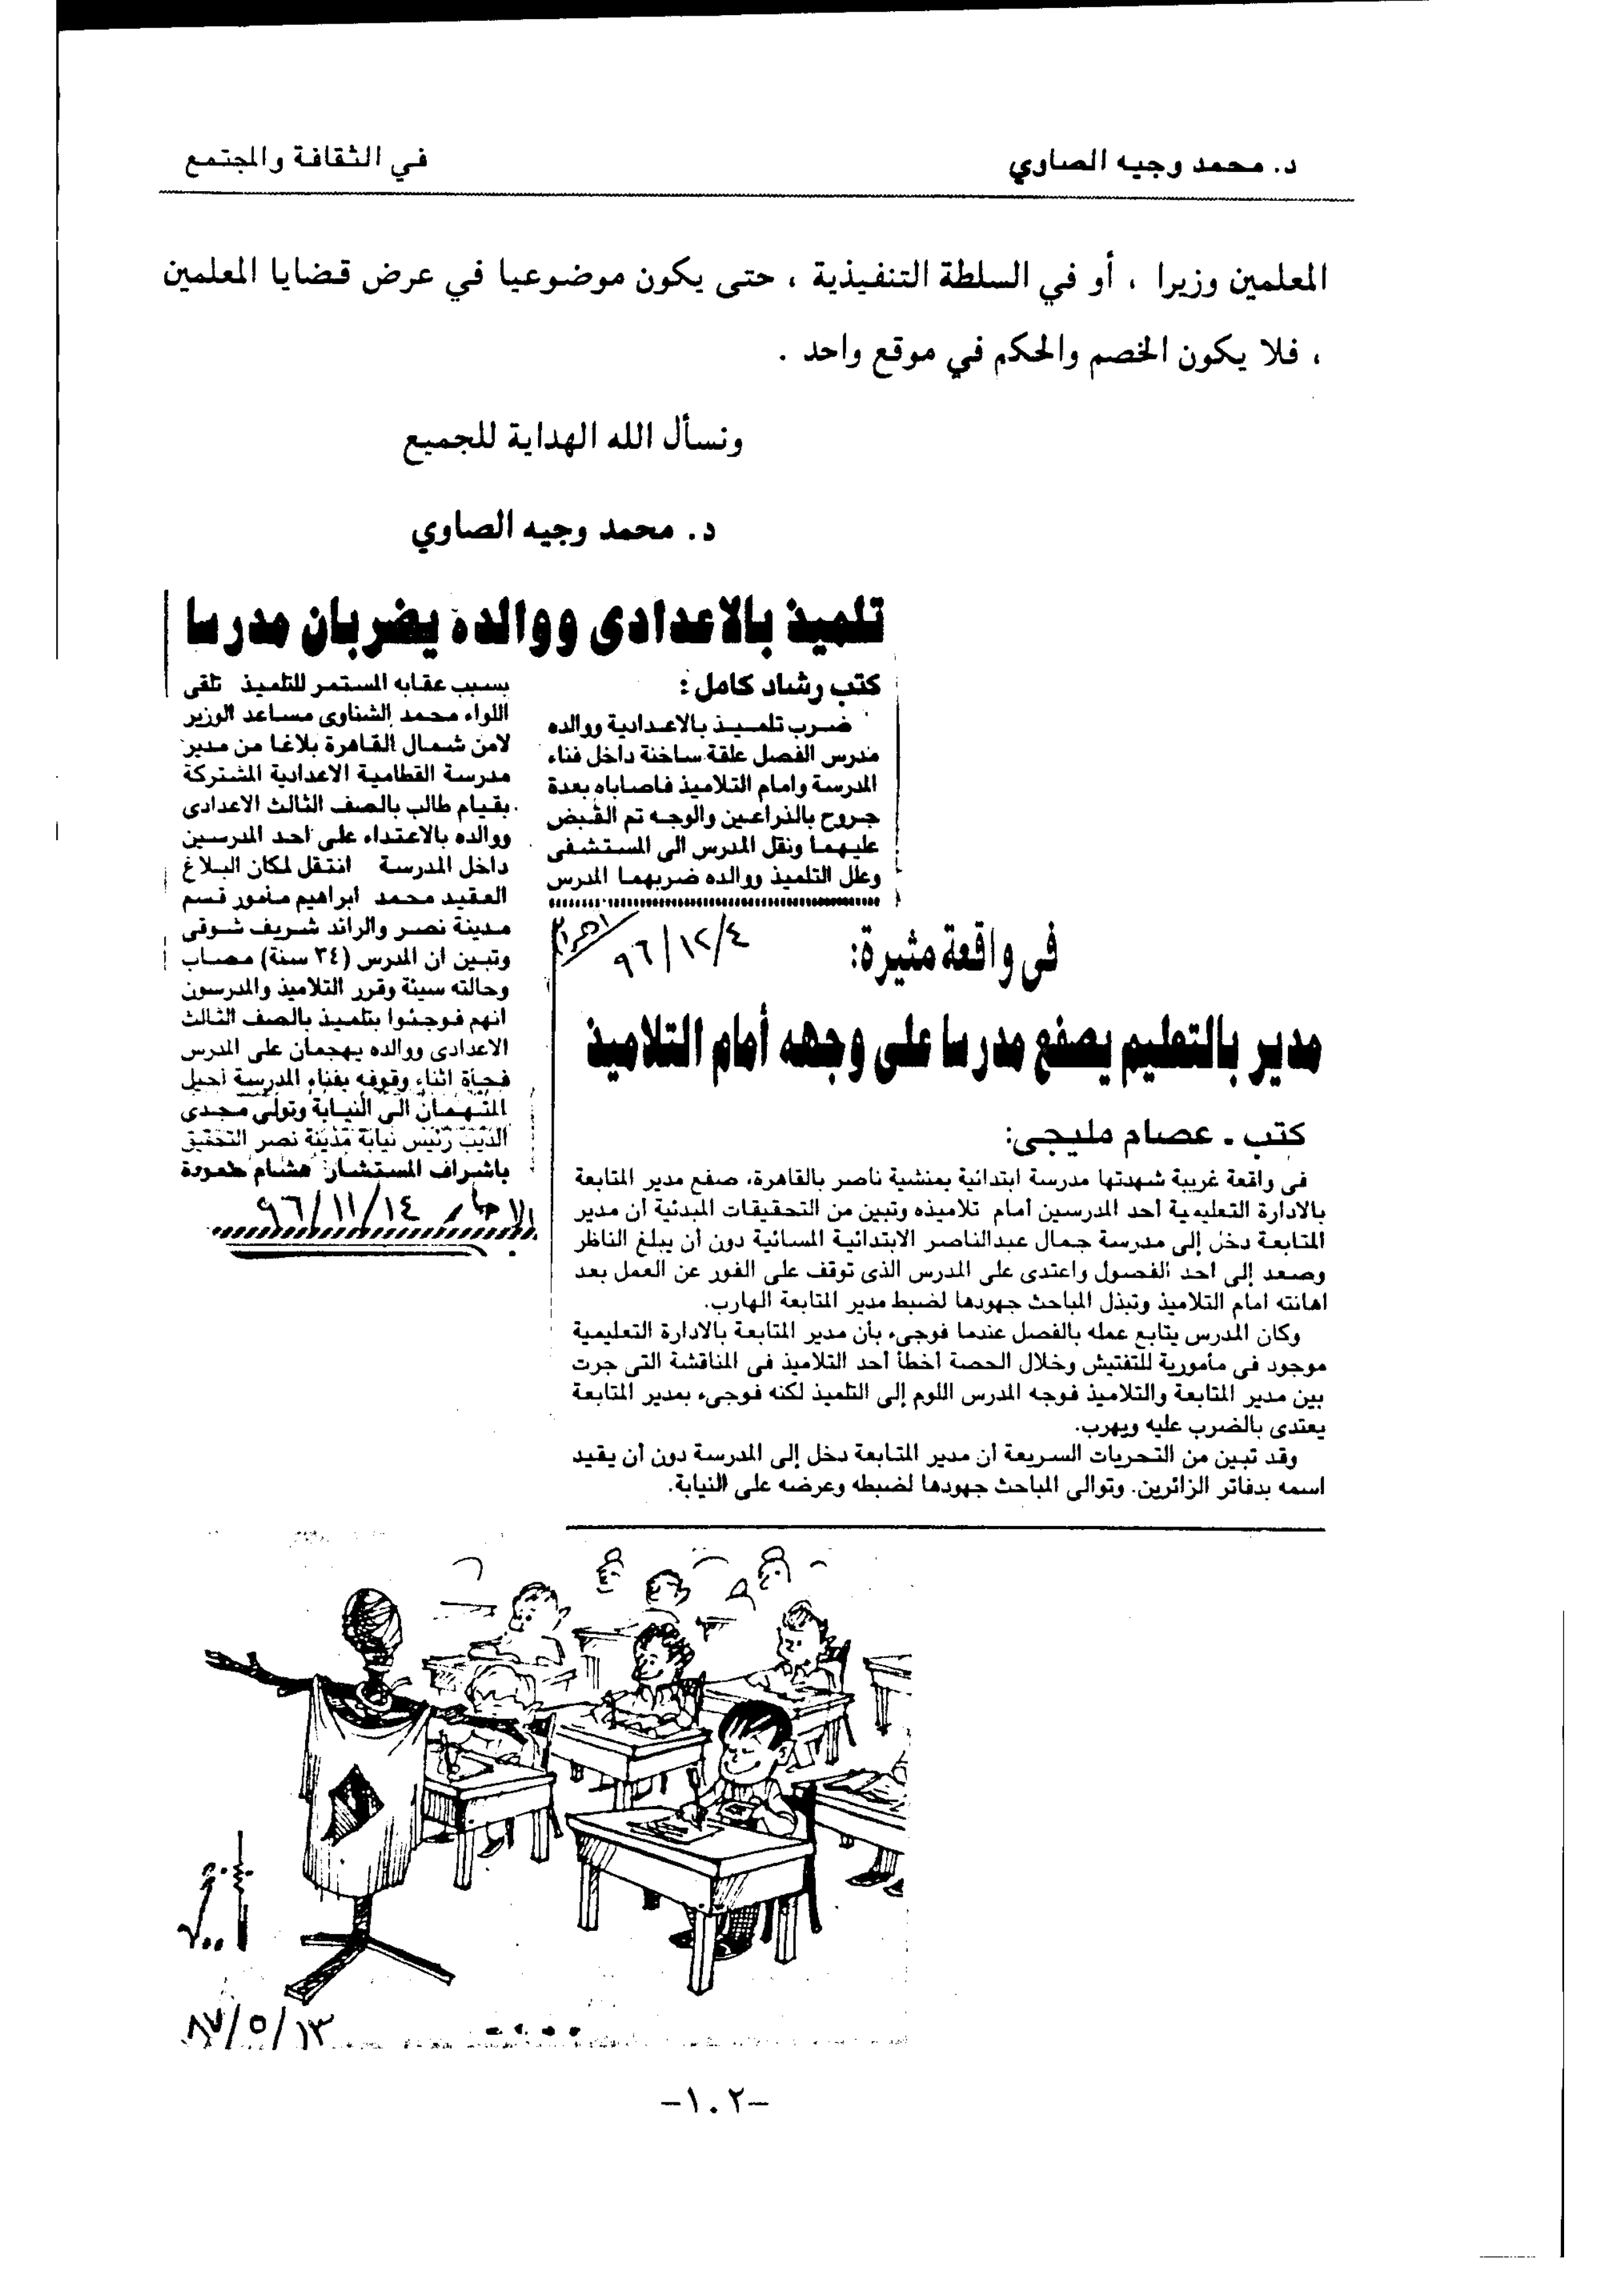 د. محمد وجيه الصاوي
في الثقافة والمجتمع
المعلمين وزيرا ، أو في السلطة التنفيذية ، حتى يكون موضوعيا في عرض قضايا المعلمين
، فلا يكون الخصم والحكم في موقع واحد .
ونسأل الله الهداية للجميع
د. محمد وجيه الصاوي
تلميذ بالاعدادى ووالده يضربان مدرسا
كتب رشاد كامل :
ضرب تلميذ بالاعدادية ووالده
مدرس الفصل علقة ساخنة داخل فناء
المدرسة وامام التلاميذ فاصاباه بعدة
جروح بالذراعين والوجه تم القبض
عليهما ونقل المدرس الى المستشفى
وعلل التلميذ ووالده ضربهما المدرس
بسبب عقابه المستمر للتلميذ تلقى
اللواء محمد الشناوى مساعد الوزير
لامن شمال القاهرة بلاغا من مدير
مدرسة القطامية الاعدادية المشتركة
بقيام طالب بالصف الثالث الاعدادى
ووالده بالاعتداء على احد المدرسين
داخل المدرسة انتقل لمكان البلاغ
العقيد محمد ابراهيم مأمور قسم
مدينة نصر والرائد شريف شوقى
وتبين ان المدرس (٣٤ سنة) مصاب
وحالته سيئة وقرر التلاميذ والمدرسون
انهم فوجئوا بتلميذ بالصف الثالث
الاعدادى ووالده يهجمان على المدرس
فجأة اثناء وقوفه بفناء المدرسة احيل
المتهمان الى النيابة وتولى مجدى
الديب رئيس نيابة مدينة نصر التحقيق
باشراف المستشار هشام حمودة
الاخبار ٩٦/١١/١٤
٩٦/١٢/٤
فى واقعة مثيرة:
مدير بالتعليم يصفع مدرسا على وجهه أمام التلاميذ
كتب ـ عصام مليجى:
فى واقعة غريبة شهدتها مدرسة ابتدائية بمنشية ناصر بالقاهرة، صفع مدير المتابعة
بالادارة التعليمية أحد المدرسين أمام تلاميذه وتبين من التحقيقات المبدئية أن مدير
المتابعة دخل إلى مدرسة جمال عبدالناصر الابتدائية المسائية دون أن يبلغ الناظر
وصعد إلى احد الفصول واعتدى على المدرس الذى توقف على الفور عن العمل بعد
اهانته امام التلاميذ وتبذل المباحث جهودها لضبط مدير المتابعة الهارب.
وكان المدرس يتابع عمله بالفصل عندما فوجىء بأن مدير المتابعة بالادارة التعليمية
موجود فى مأمورية للتفتيش وخلال الحصة أخطأ أحد التلاميذ فى المناقشة التى جرت
بين مدير المتابعة والتلاميذ فوجه المدرس اللوم إلى التلميذ لكنه فوجىء بمدير المتابعة
يعتدى بالضرب عليه ويهرب.
وقد تبين من التحريات السريعة أن مدير المتابعة دخل إلى المدرسة دون أن يقيد
اسمه بدفاتر الزائرين. وتوالى المباحث جهودها لضبطه وعرضه على النيابة.
٨٧/٥/١٣
-١٠٢-